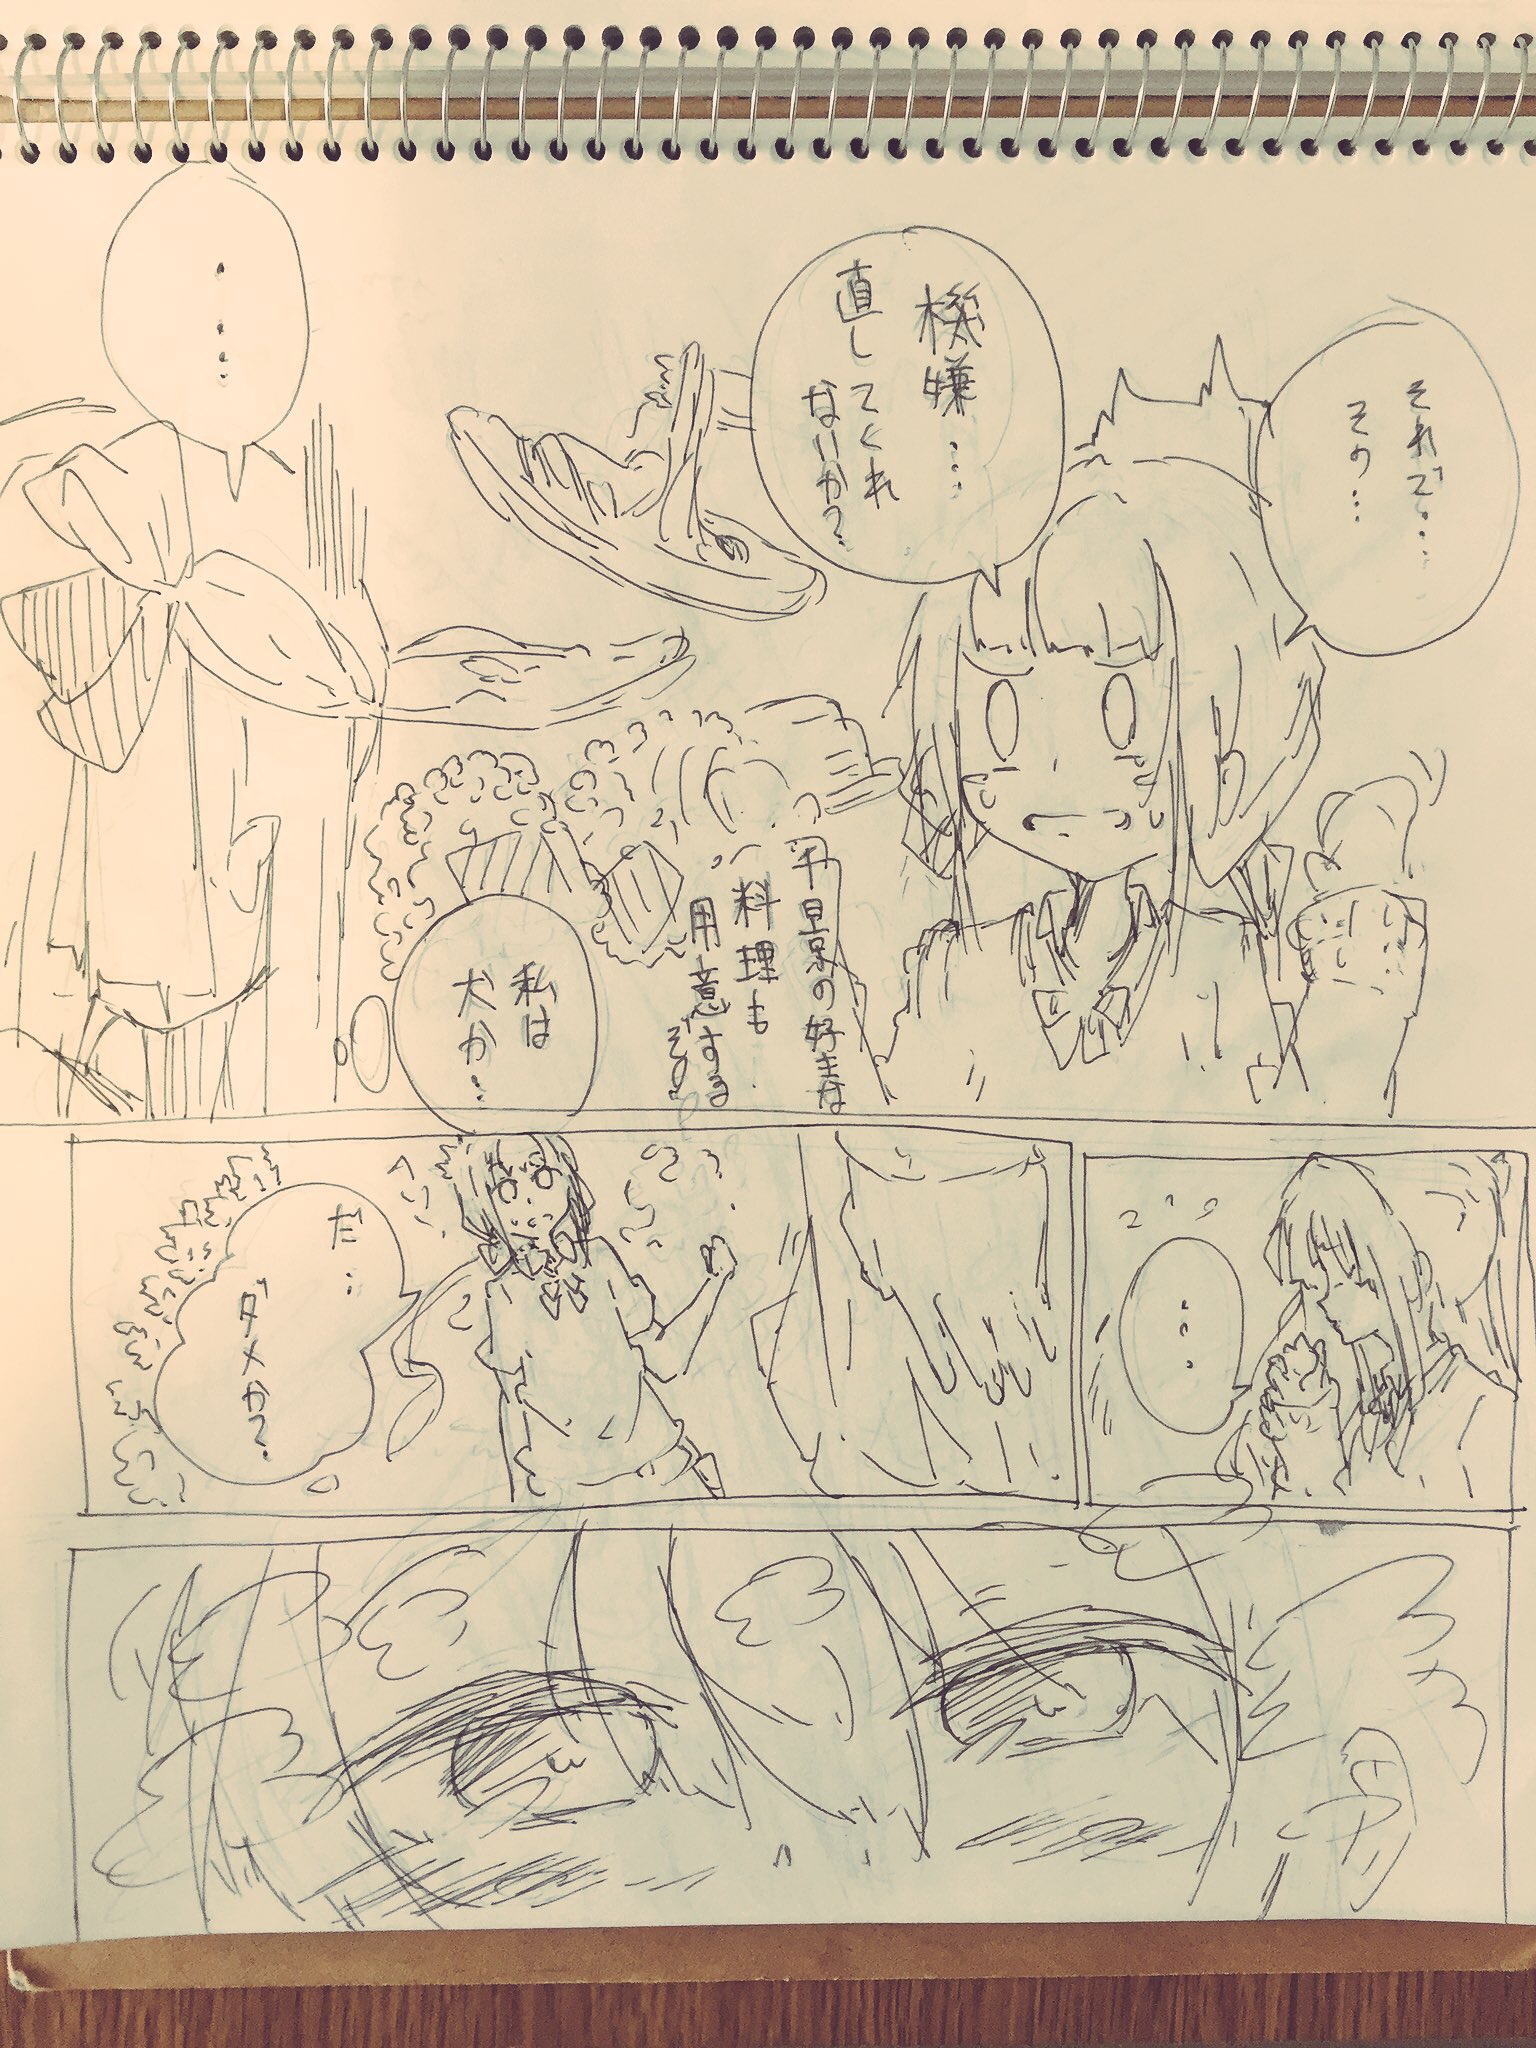 それで…
その…
機嫌…
直してくれ
ないか？
千景の好きな
料理も
用意するぞ
私は
犬か…
……
…
だ…
ダメか？